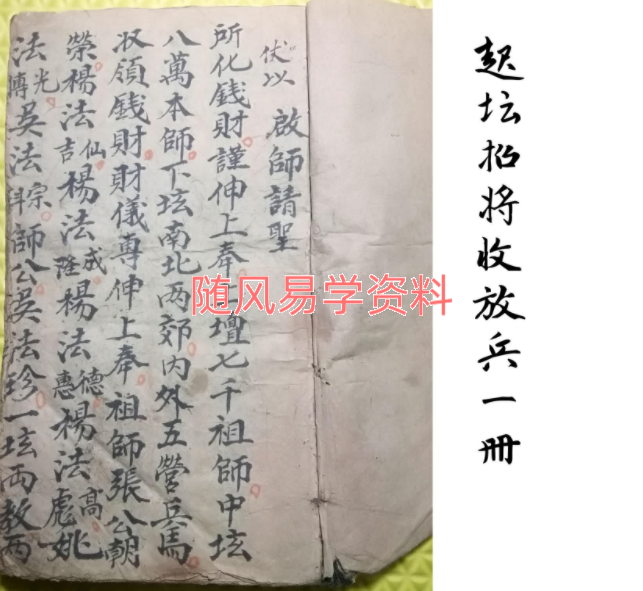 起坛招将收放兵一册
伏以 啟師請聖
所化錢財謹伸上奉上壇七千祖師中坛
八萬本師下坛南北两郊内外五營兵馬
収領錢財財儀專伸上奉祖師張公朝
榮楊法吉仙楊法隆威楊法惠德楊法彪高姚
法博光吴法科宗師公吴法珍一坛両教两
随风易学资料